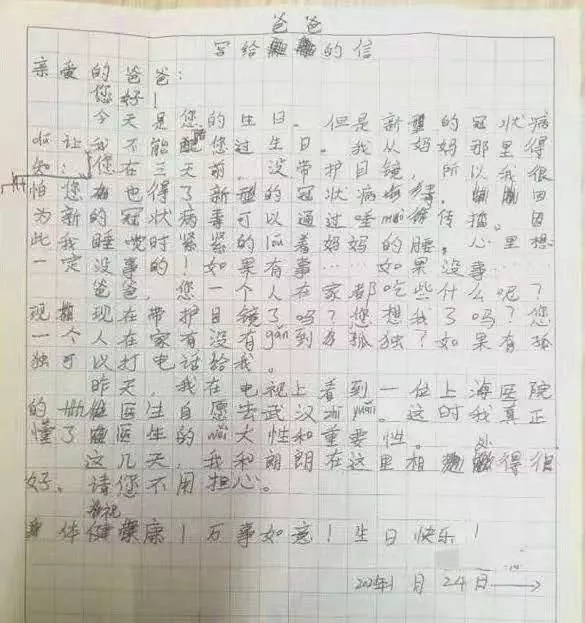 爸爸
写给的信
亲爱的爸爸：
您好！
今天是您的生日。但是新型的冠状病
让我不能陪您过生日。我从妈妈那里得
知：您在三天前，没带护目镜，所以我很
怕您也得了新型的冠状病毒。因
为新的冠状病毒可以通过唾传播。因
此我睡觉时紧紧的lōu着妈妈的腰。心里想
一定没事的！如果有事……如果没事……
爸爸，您一个人在家都吃些什么呢？
现在带护目镜了吗？您想我了吗？您
一个人在家有没有gǎn到孤独？如果有孤
独可以打电话给我。
昨天，我在电视上看到一位上海医院
的医生自愿去武汉yuán。这时我真正
懂了医生的wěi大性和重要性。
这几天，我和朗朗在这里相处得很
好、请您不用担心。
祝
身体健康！万事如意！生日快乐！
1月24日